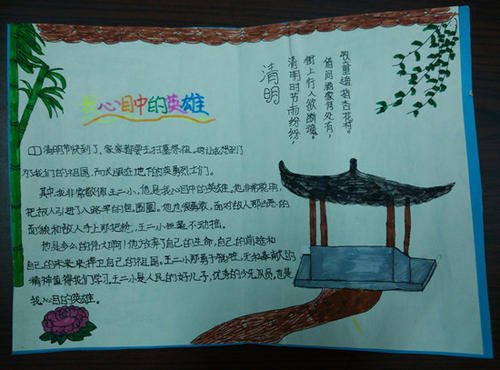 我心目中的英雄
清明
清明时节雨纷纷，
街上行人欲断魂。
借问酒家何处有，
牧童遥指杏花村。
清明节快到了，家家都要去扫墓祭祖。也让我想到了
为我们的祖国，而长眠在地下的英勇烈士们。
其中，我非常敬佩王二小，他是我心目中的英雄。他非常聪明，
把敌人引进了八路军的包围圈。他也很勇敢，面对敌人那凶恶的
面貌和敌人手上那把枪，王二小丝毫不动摇。
他是多么的伟大啊！他放弃了自己的生命，自己的前途和
自己的未来，来捍卫自己的祖国，王二小那勇于牺牲，无私奉献的
精神值得我们学习，王二小是人民的好儿子，优秀的少先队员，也是
我心目的英雄。